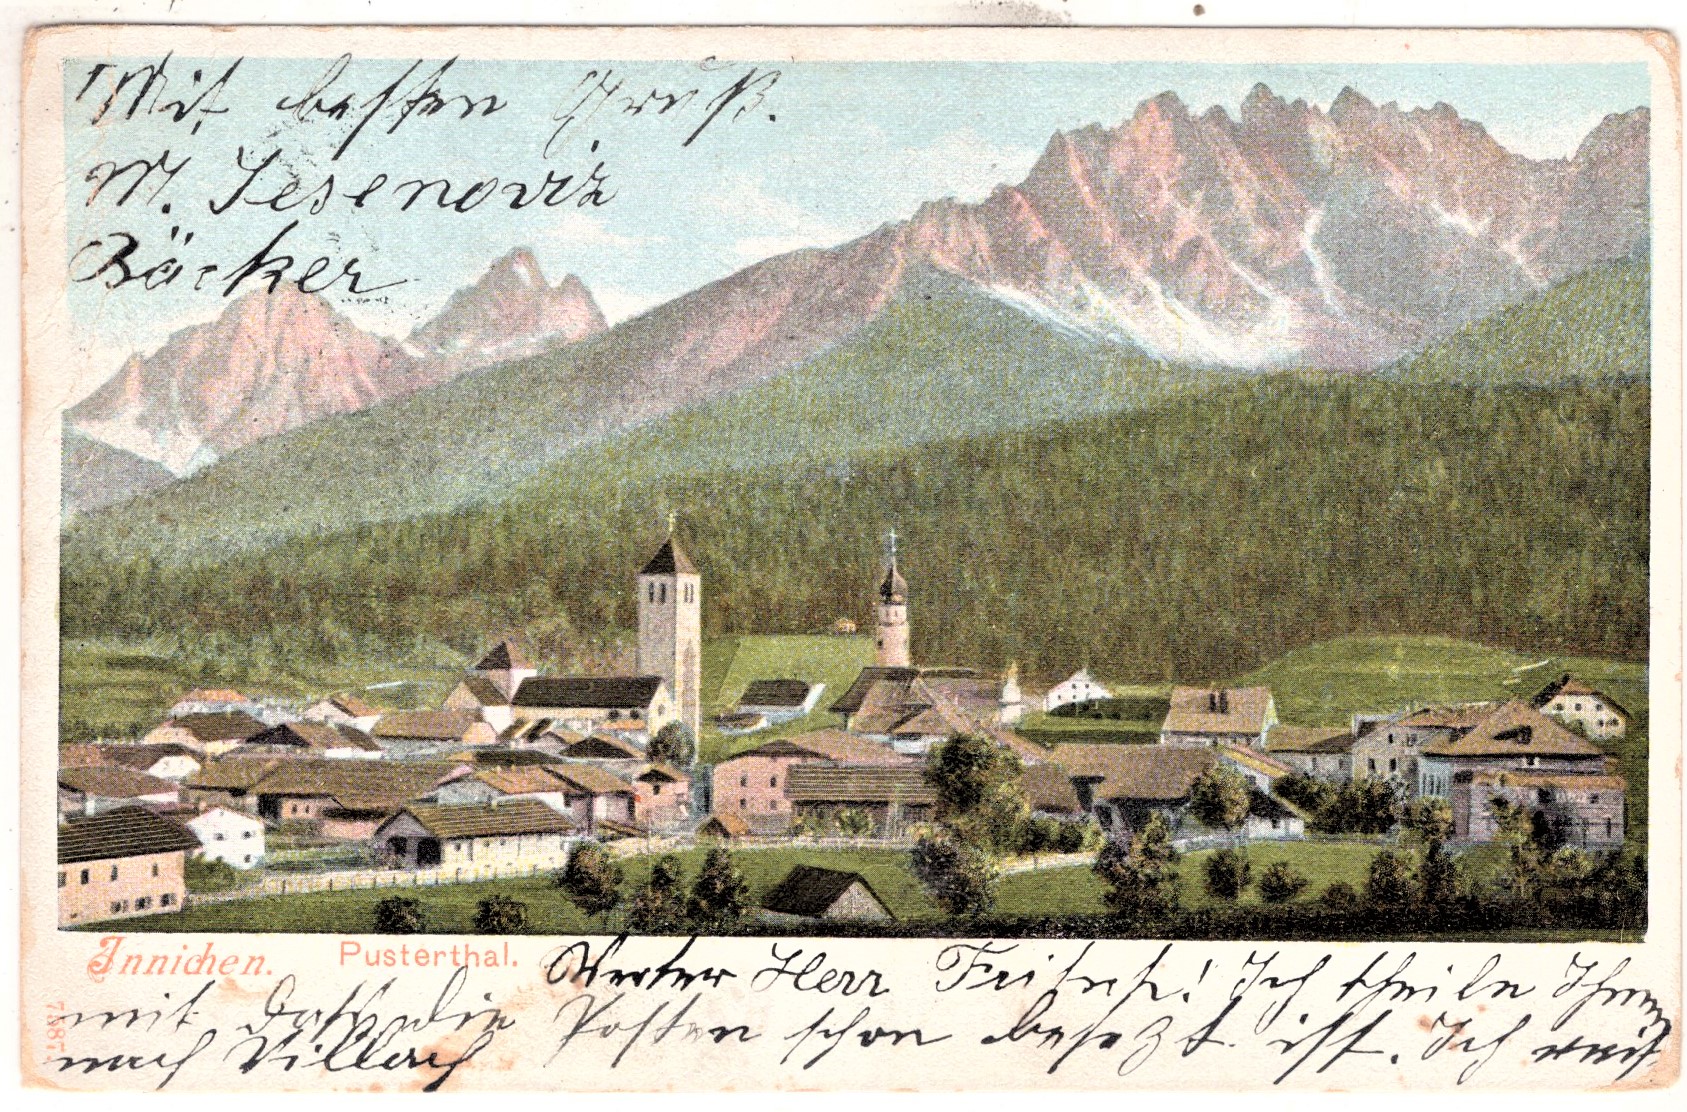 Mit besten Gruß.
M. Jesenoviz
Bäcker
Innichen. Pusterthal.
Werter Herr Fritsch! Ich theile Ihnen
mit dass die Posten schon besezt ist. Ich
nach Villach